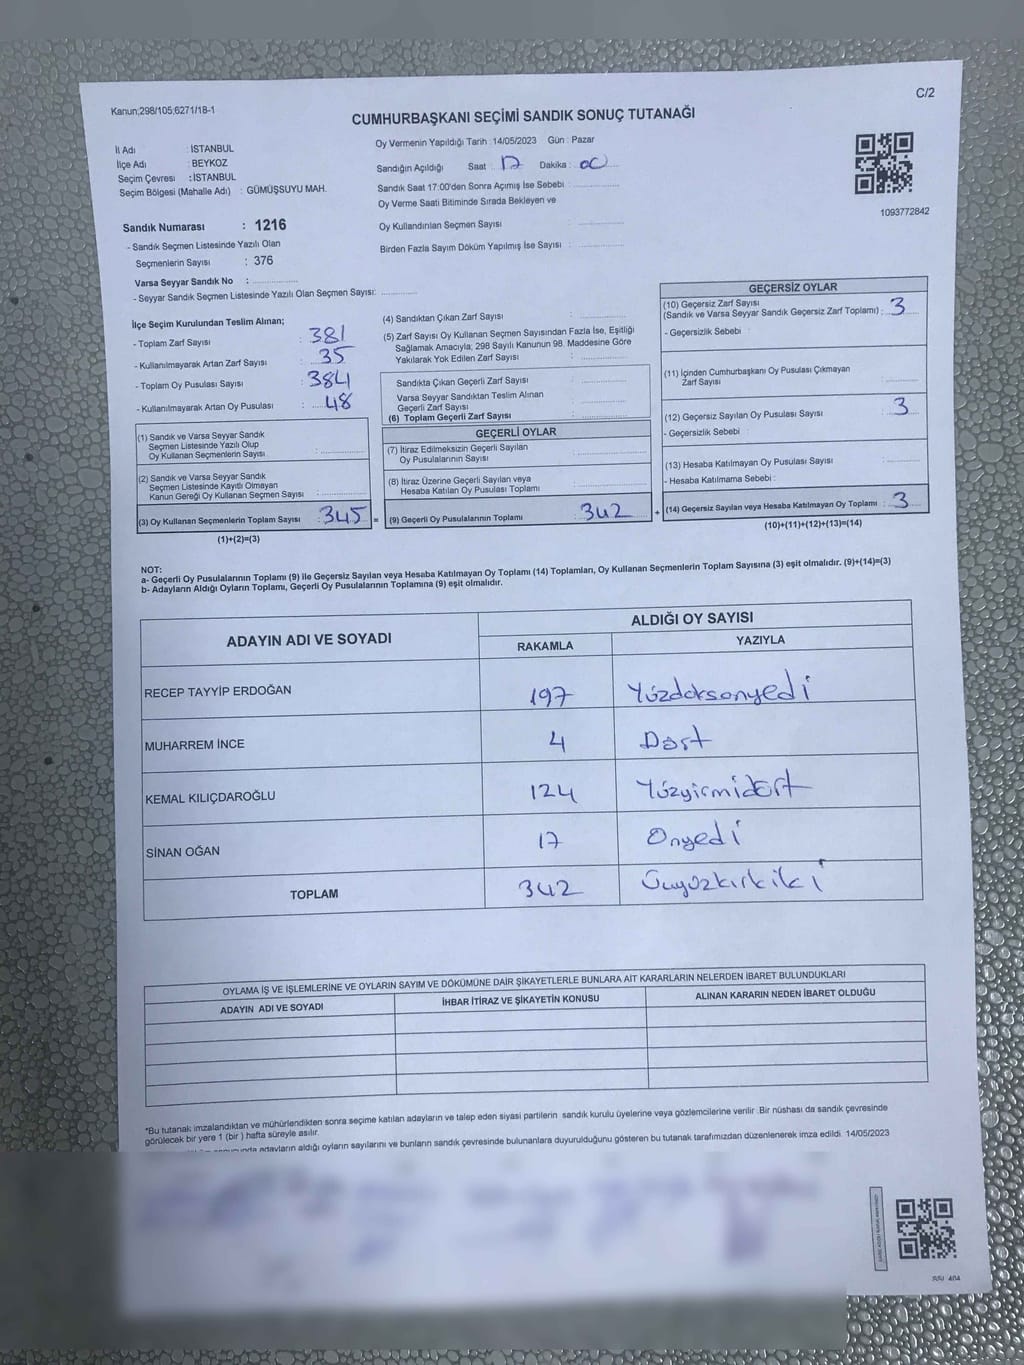 C/2
Kanun;298/105;6271/18-1
CUMHURBAŞKANI SEÇİMİ SANDIK SONUÇ TUTANAĞI
İl Adı : İSTANBUL
İlçe Adı : BEYKOZ
Seçim Çevresi : İSTANBUL
Seçim Bölgesi (Mahalle Adı) : GÜMÜŞSUYU MAH.
Oy Vermenin Yapıldığı Tarih : 14/05/2023 Gün : Pazar
Sandığın Açıldığı Saat : 17 Dakika : 00
Sandık Saat 17:00'den Sonra Açımış İse Sebebi :
Oy Verme Saati Bitiminde Sırada Bekleyen ve
Oy Kullandırılan Seçmen Sayısı :
Birden Fazla Sayım Döküm Yapılmış İse Sayısı :
1093772842
Sandık Numarası : 1216
- Sandık Seçmen Listesinde Yazılı Olan
Seçmenlerin Sayısı : 376
Varsa Seyyar Sandık No :
- Seyyar Sandık Seçmen Listesinde Yazılı Olan Seçmen Sayısı:
İlçe Seçim Kurulundan Teslim Alınan;
- Toplam Zarf Sayısı : 381
- Kullanılmayarak Artan Zarf Sayısı : 35
- Toplam Oy Pusulası Sayısı : 384
- Kullanılmayarak Artan Oy Pusulası : 48
(1) Sandık ve Varsa Seyyar Sandık
Seçmen Listesinde Yazılı Olup
Oy Kullanan Seçmenlerin Sayısı :
(2) Sandık ve Varsa Seyyar Sandık
Seçmen Listesinde Kayıtlı Olmayan
Kanun Gereği Oy Kullanan Seçmen Sayısı :
(3) Oy Kullanan Seçmenlerin Toplam Sayısı : 345 =
(1)+(2)=(3)
(4) Sandıktan Çıkan Zarf Sayısı :
(5) Zarf Sayısı Oy Kullanan Seçmen Sayısından Fazla İse, Eşitliği
Sağlamak Amacıyla; 298 Sayılı Kanunun 98. Maddesine Göre
Yakılarak Yok Edilen Zarf Sayısı :
Sandıkta Çıkan Geçerli Zarf Sayısı :
Varsa Seyyar Sandıktan Teslim Alınan
Geçerli Zarf Sayısı :
(6) Toplam Geçerli Zarf Sayısı :
GEÇERLİ OYLAR
(7) İtiraz Edilmeksizin Geçerli Sayılan
Oy Pusulalarının Sayısı :
(8) İtiraz Üzerine Geçerli Sayılan veya
Hesaba Katılan Oy Pusulası Toplamı :
(9) Geçerli Oy Pusulalarının Toplamı : 342 +
GEÇERSİZ OYLAR
(10) Geçersiz Zarf Sayısı
(Sandık ve Varsa Seyyar Sandık Geçersiz Zarf Toplamı) : 3
- Geçersizlik Sebebi :
(11) İçinden Cumhurbaşkanı Oy Pusulası Çıkmayan
Zarf Sayısı :
(12) Geçersiz Sayılan Oy Pusulası Sayısı : 3
- Geçersizlik Sebebi :
(13) Hesaba Katılmayan Oy Pusulası Sayısı :
- Hesaba Katılmama Sebebi :
(14) Geçersiz Sayılan veya Hesaba Katılmayan Oy Toplamı : 3
(10)+(11)+(12)+(13)=(14)
NOT:
a- Geçerli Oy Pusulalarının Toplamı (9) ile Geçersiz Sayılan veya Hesaba Katılmayan Oy Toplamı (14) Toplamları, Oy Kullanan Seçmenlerin Toplam Sayısına (3) eşit olmalıdır. (9)+(14)=(3)
b- Adayların Aldığı Oyların Toplamı, Geçerli Oy Pusulalarının Toplamına (9) eşit olmalıdır.
ADAYIN ADI VE SOYADI
ALDIĞI OY SAYISI
RAKAMLA YAZIYLA
RECEP TAYYİP ERDOĞAN 197 Yüzdoksanyedi
MUHARREM İNCE 4 Dört
KEMAL KILIÇDAROĞLU 124 Yüzyirmidört
SİNAN OĞAN 17 Onyedi
TOPLAM 342 Üçyüzkırkiki
OYLAMA İŞ VE İŞLEMLERİNE VE OYLARIN SAYIM VE DÖKÜMÜNE DAİR ŞİKAYETLERLE BUNLARA AİT KARARLARIN NELERDEN İBARET BULUNDUKLARI
ADAYIN ADI VE SOYADI İHBAR İTİRAZ VE ŞİKAYETİN KONUSU ALINAN KARARIN NEDEN İBARET OLDUĞU
*Bu tutanak imzalandıktan ve mühürlendikten sonra seçime katılan adayların ve talep eden siyasi partilerin sandık kurulu üyelerine veya gözlemcilerine verilir .Bir nüshası da sandık çevresinde
görülecek bir yere 1 (bir ) hafta süreyle asılır.
adayların aldığı oyların sayılarını ve bunların sandık çevresinde bulunanlara duyurulduğunu gösteren bu tutanak tarafımızdan düzenlenerek imza edildi. 14/05/2023